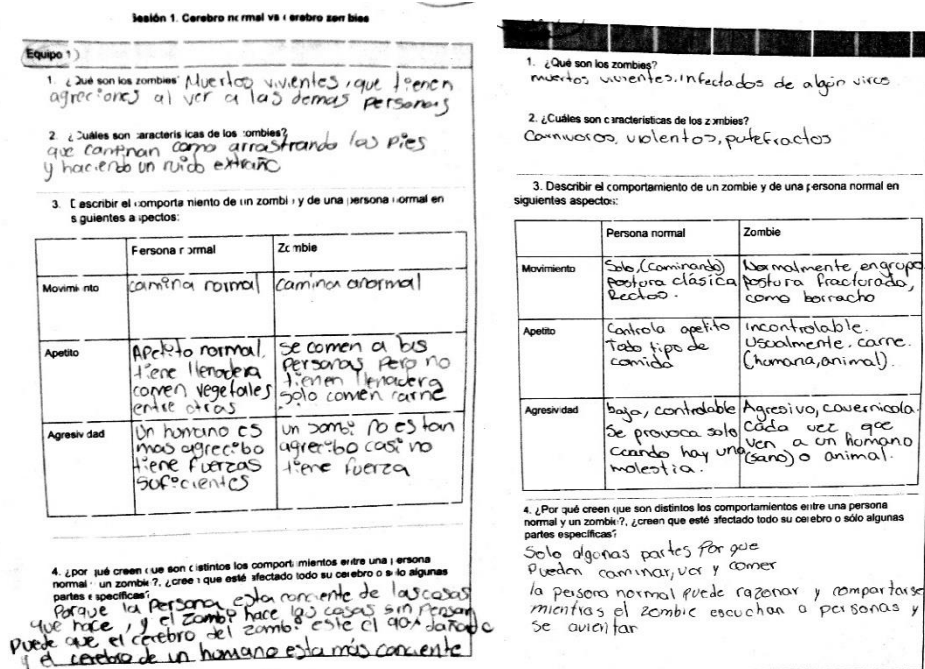 Sesión 1. Cerebro normal vs cerebro zombies
Equipo 1)
1. ¿Qué son los zombies? Muertos vivientes, que tienen
agreciones al ver a las demas personas
2. ¿Cuáles son características de los zombies?
que caminan como arrastrando los pies
y haciendo un ruido extraño
3. Describir el comportamiento de un zombie y de una persona normal en
siguientes aspectos:
Persona normal Zombie
Movimiento camina normal camina anormal
Apetito Apetito normal. se comen a las
tiene llenadera personas pero no
comen vegetales tienen llenadera
entre otras solo comen carne
Agresividad Un humano es un zombi no es tan
mas agrecibo agrecibo casi no
tiene fuerzas tiene fuerza
suficientes
4. ¿por qué creen que son distintos los comportamientos entre una persona
normal y un zombie?, ¿creen que esté afectado todo su cerebro o sólo algunas
partes específicas?
Porque la persona esta conciente de las cosas
que hace, y el zombi hace las cosas sin pensar
Puede que el cerebro del zombi este el 90% dañado
y el cerebro de un humano esta más conciente
1. ¿Qué son los zombies?
muertos vivientes, infectados de algún virus
2. ¿Cuáles son características de los zombies?
Carnivoros, violentos, putefractos
3. Describir el comportamiento de un zombie y de una persona normal en
siguientes aspectos:
Persona normal Zombie
Movimiento Solo, (caminando) Normalmente en grupo
postura clásica postura fracturada,
Rectos. como borracho
Apetito Controla apetito incontrolable.
Todo tipo de Usualmente. carne.
comida (humana, animal).
Agresividad baja, controlable Agresivo, cavernicola.
Se provoca solo Cada vez que
cuando hay una ven a un humano
molestia. (sano) o animal.
4. ¿Por qué creen que son distintos los comportamientos entre una persona
normal y un zombie?, ¿creen que esté afectado todo su cerebro o sólo algunas
partes específicas?
Solo algunas partes por que
Pueden caminar, ver y comer
la persona normal puede razonar y comportarse
mientras el zombie escuchan a personas y
se avientan